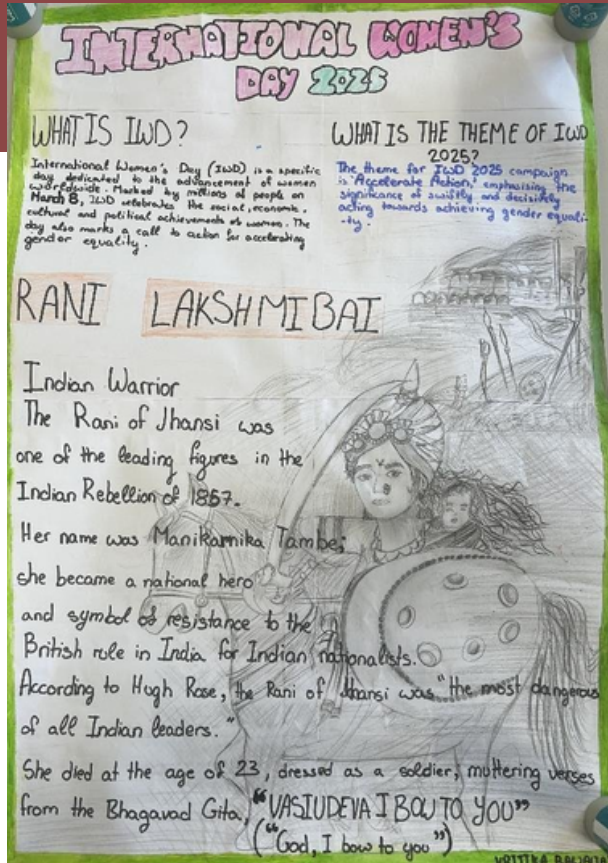 INTERNATIONAL WOMEN'S
DAY 2025
WHAT IS IWD?
International Women's Day (IWD) is a specific
day dedicated to the advancement of women
worldwide. Marked by millions of people on
March 8, IWD celebrates the social, economic,
cultural and political achievements of women. The
day also marks a call to action for accelerating
gender equality.
WHAT IS THE THEME OF IWD
2025?
The theme for IWD 2025 campaign
is 'Accelerate Action,' emphasising the
significance of swiftly and decisively
acting towards achieving gender equali-
-ty.
RANI LAKSHMIBAI
Indian Warrior
The Rani of Jhansi was
one of the leading figures in the
Indian Rebellion of 1857.
Her name was Manikarnika Tambe;
she became a national hero
and symbol of resistance to the
British role in India for Indian nationalists.
According to Hugh Rose, the Rani of Jhansi was "the most dangerous
of all Indian leaders."
She died at the age of 23, dressed as a soldier, muttering verses
from the Bhagavad Gita, "VASIUDEVA I BOW TO YOU"
("God, I bow to you")